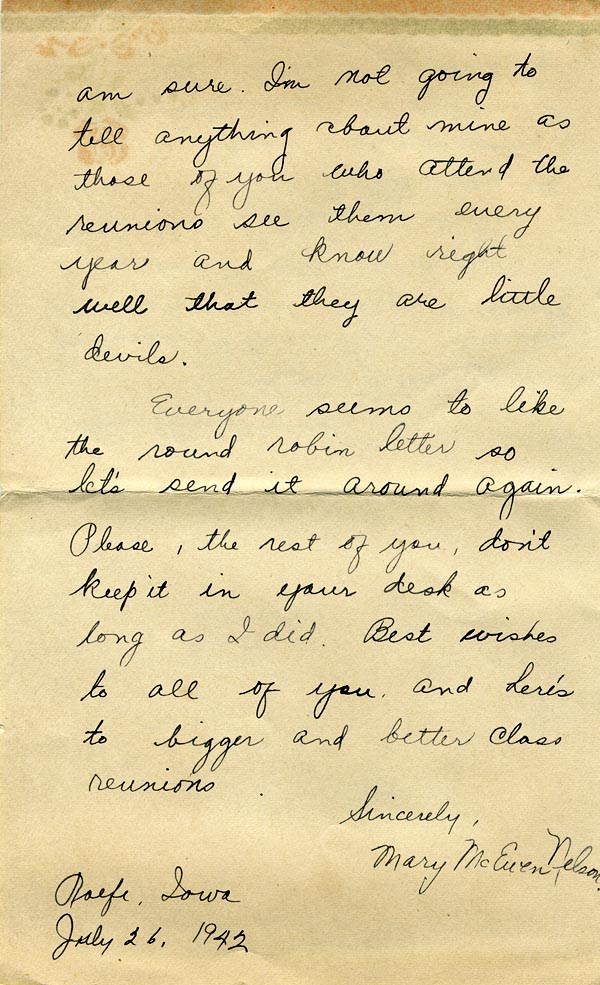 am sure. I'm not going to
tell anything about mine as
those of you who attend the
reunions see them every
year and know right
well that they are little
devils.
Everyone seems to like
the round robin letter so
let's send it around again.
Please, the rest of you, don't
keep it in your desk as
long as I did. Best wishes
to all of you. and here's
to bigger and better class
reunions.
Sincerely,
Mary McEwen Nelson.
Rolfe, Iowa
July 26, 1942